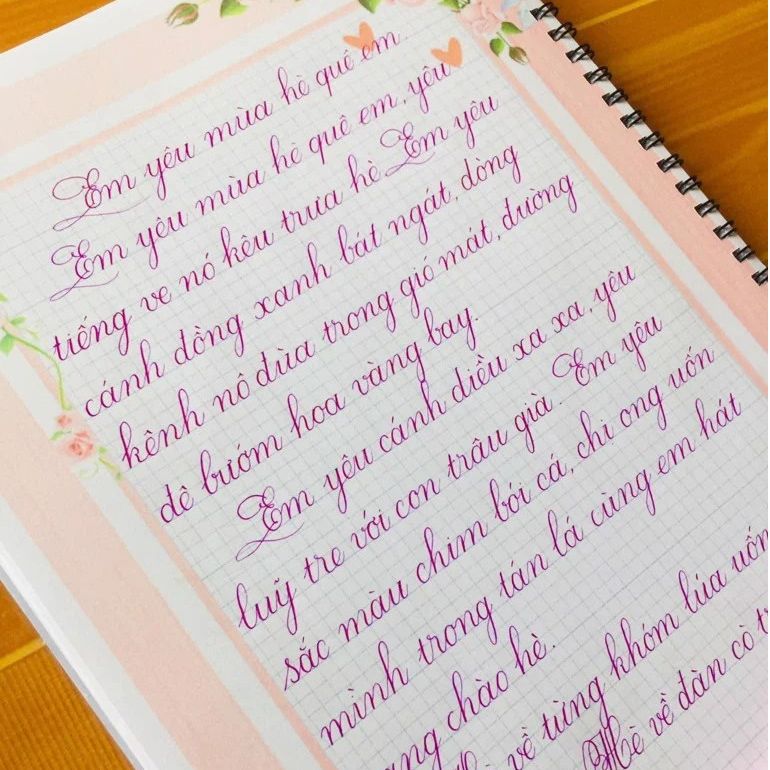 Em yêu mùa hè quê em.
Em yêu mùa hè quê em, yêu
tiếng ve nó kêu trưa hè. Em yêu
cánh đồng xanh bát ngát, dòng
kênh nô đùa trong gió mát, đường
đê bướm hoa vàng bay.
Em yêu cánh diều xa xa, yêu
luỹ tre với con trâu già. Em yêu
sắc màu chim bói cá, chi ong uốn
mình trong tán lá cùng em hát
chào hè.
về từng khóm lúa uốn
Hè về đàn cò